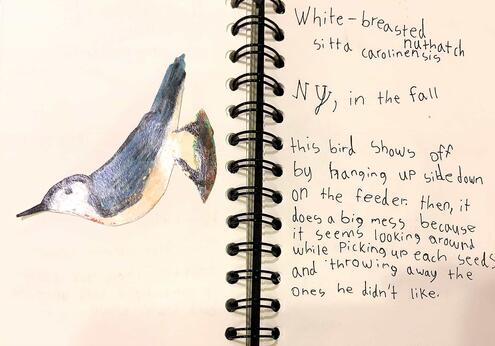 White-breasted
nuthatch
sitta carolinensis
NY, in the fall
this bird shows off
by hanging up side down
on the feeder. then, it
does a big mess because
it seems looking around
while picking up each seeds
and throwing away the
ones he didn't like.